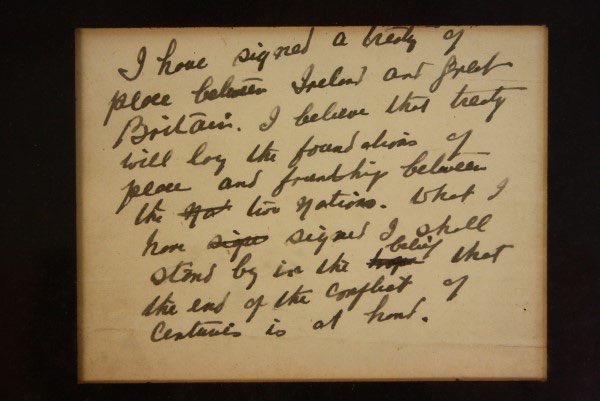 I have signed a treaty of
peace between Ireland and Great
Britain. I believe that treaty
will lay the foundations of
peace and friendship between
the Na two Nations. What I
have sign signed I shall
stand by in the hope belief that
the end of the conflict of
centuries is at hand.